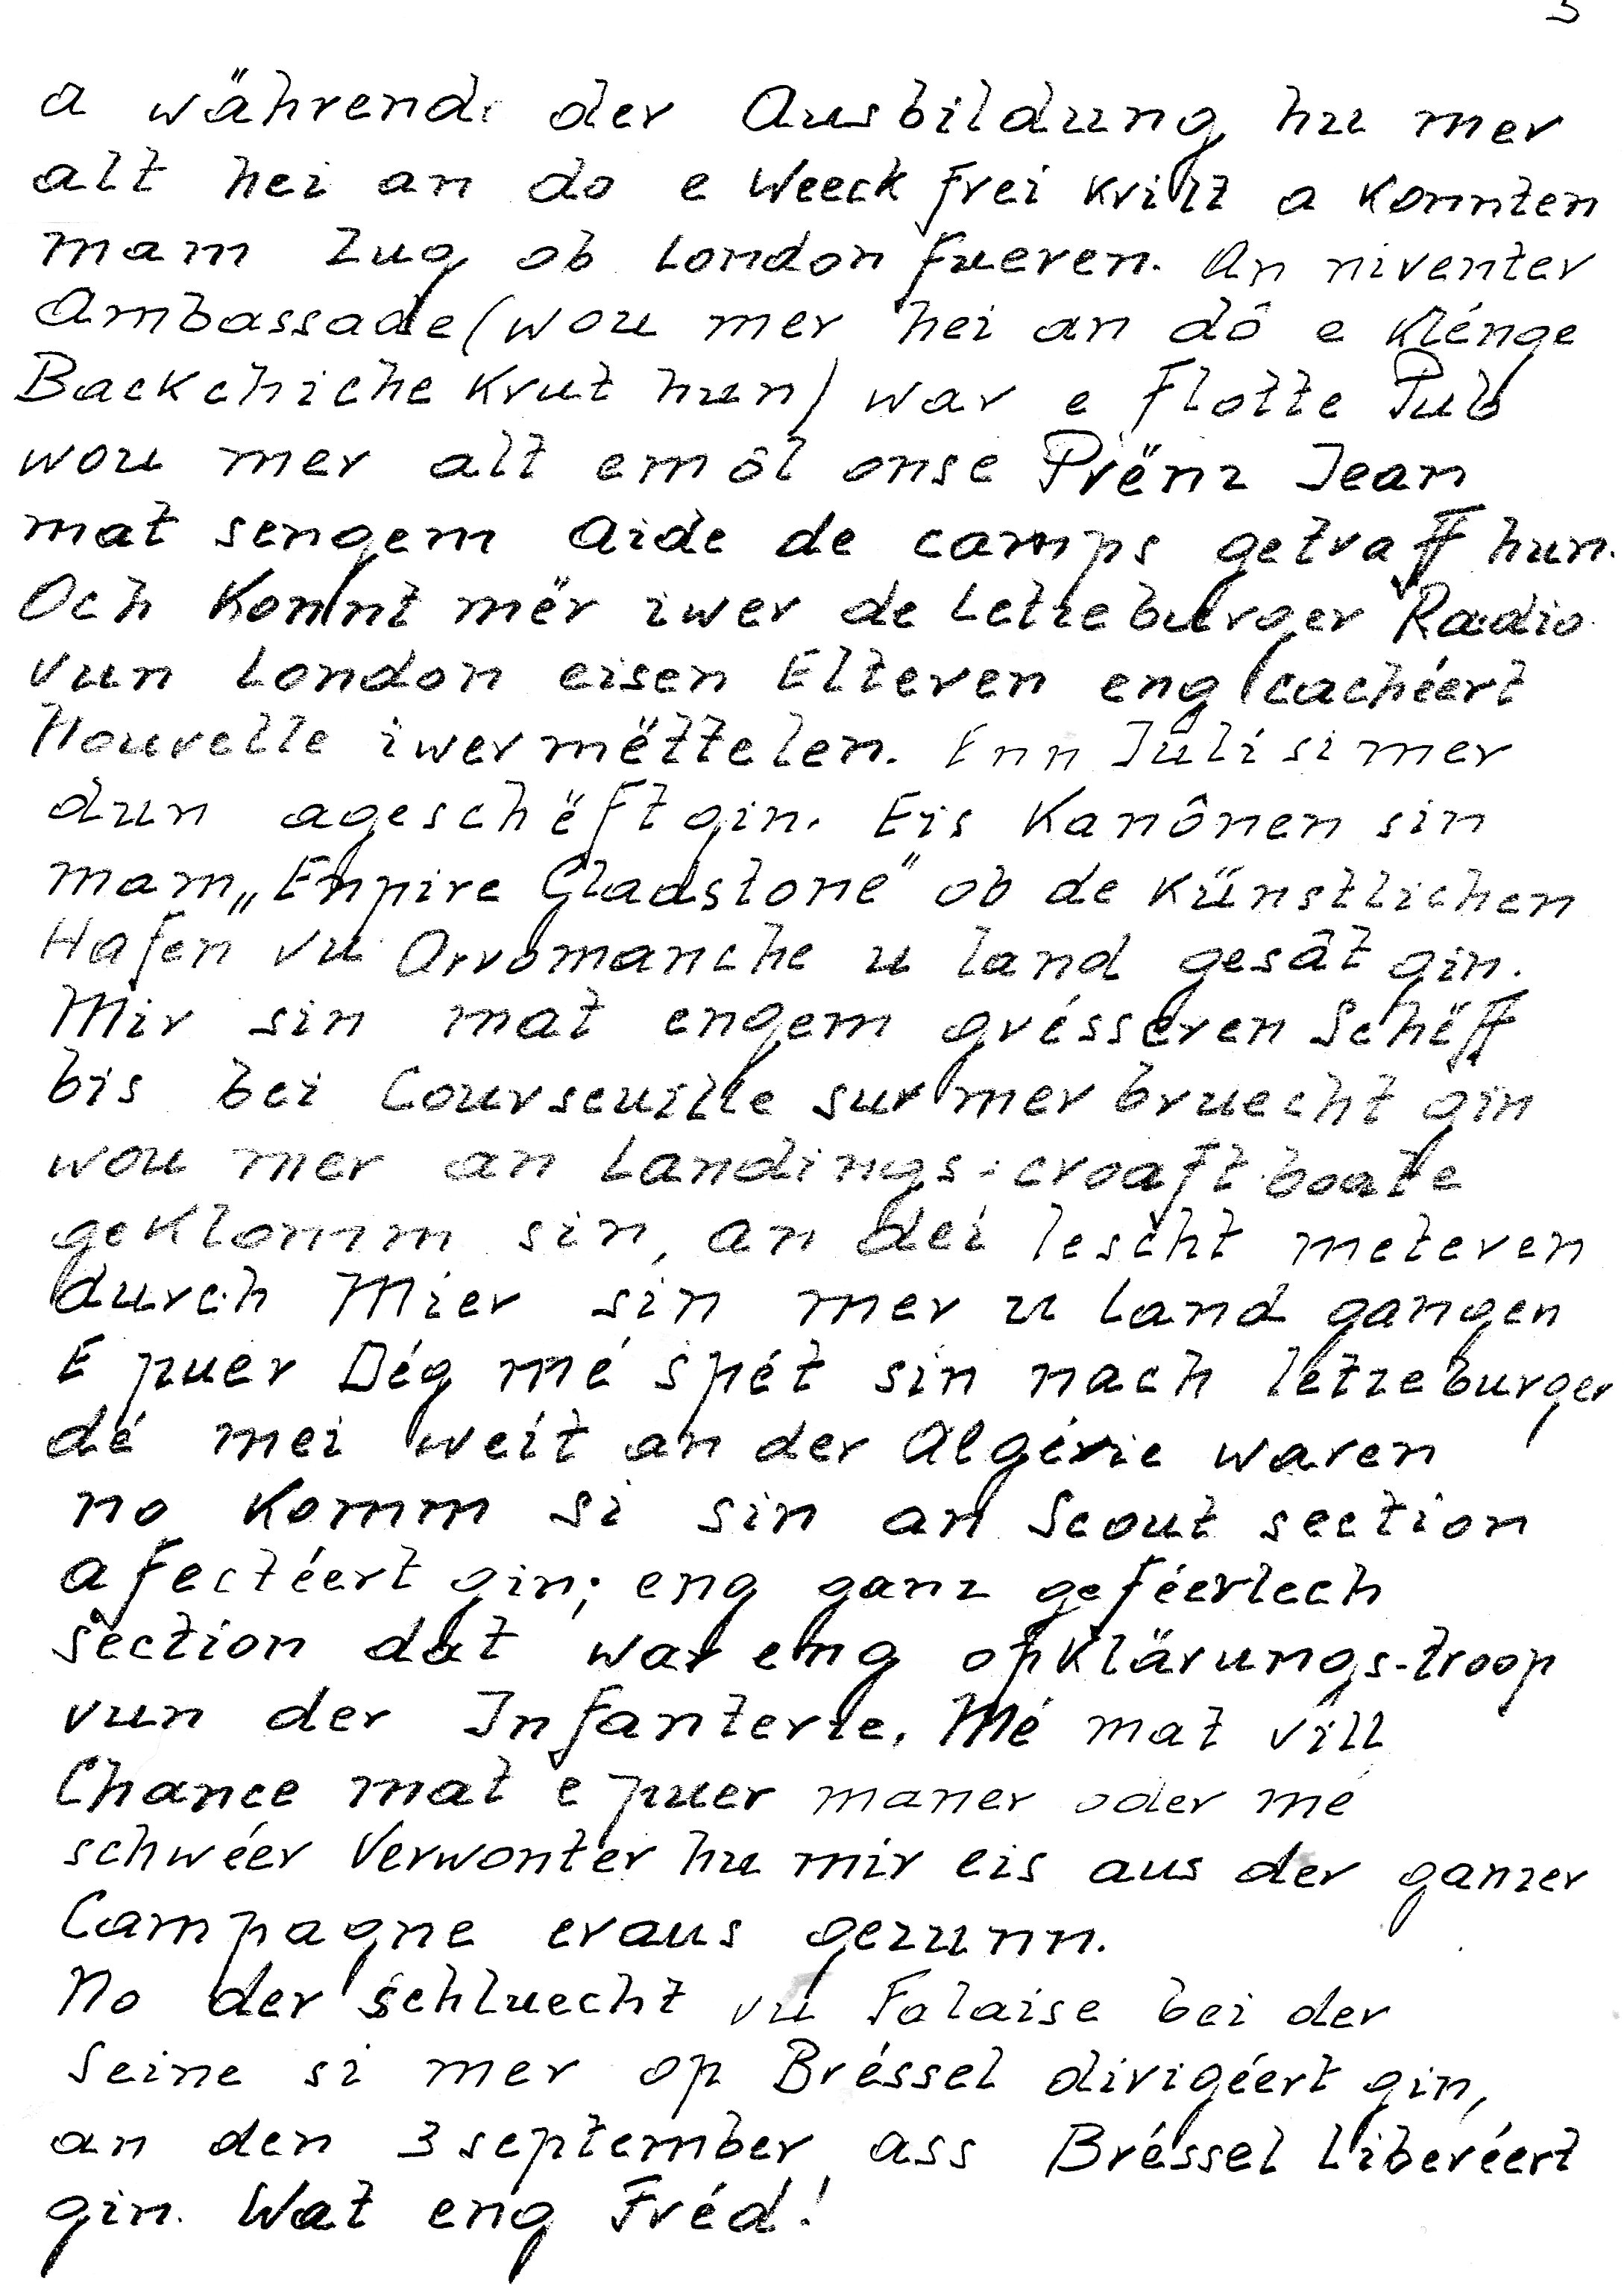 a während der Ausbildung hu mer
alt hei an do e Weeck frei kritt a konnten
mam Zug ob London fueren. An niventer
Ambassade (wou mer hei an dô e klénge
Backchiche krut hun) war e flotte Pub
wou mer alt emôl onse Prënz Jean
mat sengem Aide de camps getraff hun.
Och konnt mër iwer de Letzeburger Radio
vun London eisen Elteren eng cachéert
Nouvelle iwermëttelen. Enn Juli si mer
dun ageschëft gin. Eis Kanônen sin
mam „Empire Gladstone" ob de künstlichen
Hafen vu Arromanche u land gesât gin.
Mir sin mat engem grésseren Schëff
bis bei Courseuille sur mer bruecht gin
wou mer an Landings-croaft-boate
geklomm sin, an déi lescht meteren
durch Mier sin mer u land gangen
E puer Dég mé spét sin nach létzeburger
dé mei weit an der Algérie waren
no komm si sin an Scout section
afectéert gin; eng ganz geféerlech
section dat war eng opklärungs-troop
vun der Infanterie. Mé mat vill
Chance mat e puer maner oder mé
schwéer Verwonter hu mir eis aus der ganzer
Campagne eraus gezunn.
No der Schluecht vu Falaise bei der
Seine si mer op Bréssel dirigéert gin,
an den 3 september ass Bréssel liberéert
gin. Wat eng Fréd!